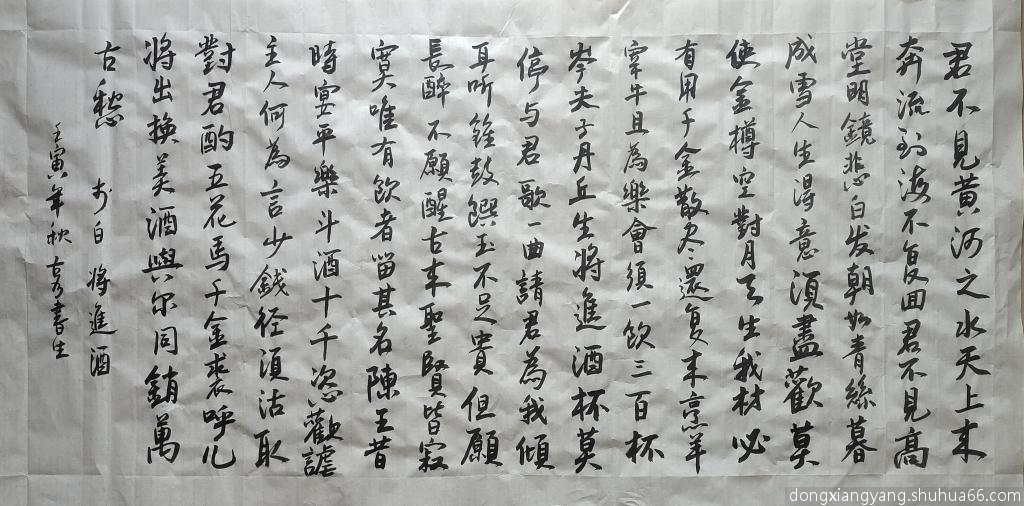 君不見黄河之水天上来
奔流到海不复回君不見高
堂明鏡悲白发朝如青絲暮
成雪人生得意須盡歡莫
使金樽空對月天生我材必
有用千金散尽還复来烹羊
宰牛且為樂會須一飲三百杯
岑夫子丹丘生將進酒杯莫
停与君歌一曲請君為我傾
耳听鐘鼓饌玉不足貴但願
長醉不願醒古来聖賢皆寂
寞唯有飲者留其名陳王昔
時宴平樂斗酒十千恣歡謔
主人何為言少錢径須沽取
對君酌五花馬千金裘呼儿
將出換美酒與尔同銷萬
古愁 李白 將進酒
壬寅年秋 書生
dongxiangyang.shuhua66.com